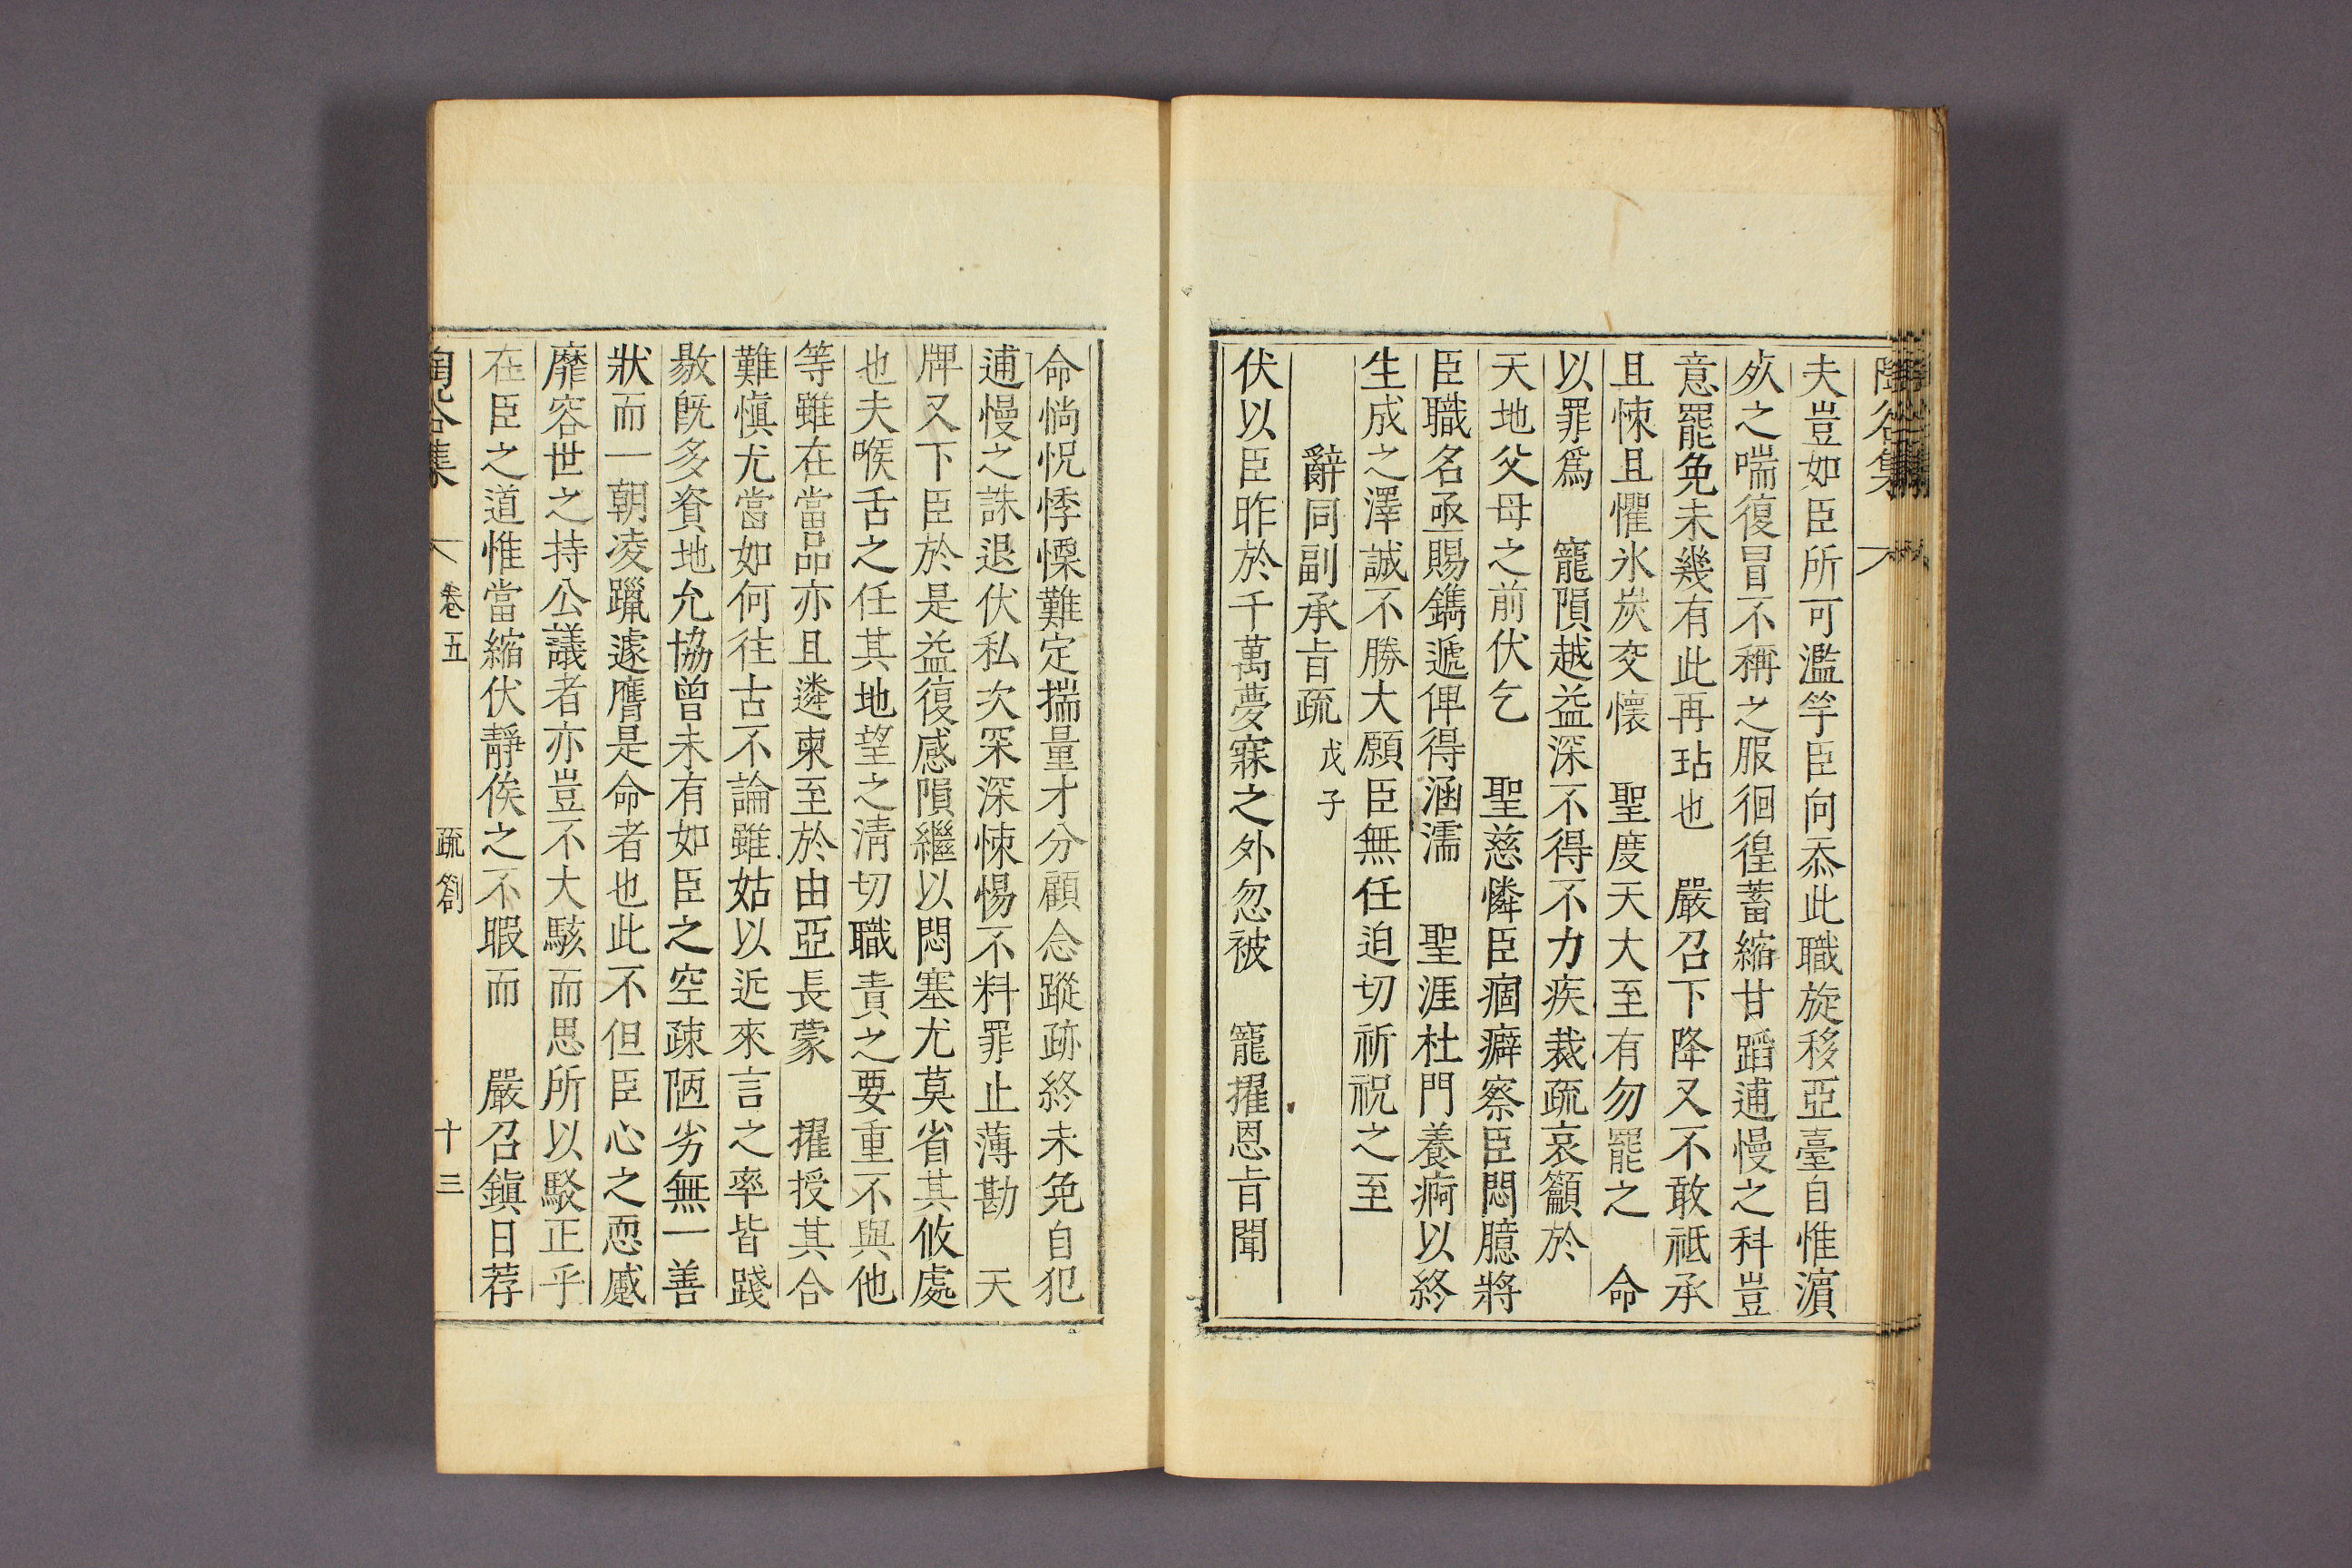 夫豈如臣所可濫竽臣向忝此職旋移亞臺自惟濵
㱙之喘復冒不稱之服徊徨蓄縮甘蹈逋慢之科豈
意罷免未幾有此再玷也 嚴召下降又不敢祗承
且悚且懼氷炭交懷 聖度天大至有勿罷之 命
以罪爲 寵隕越益深不得不力疾裁疏哀籲於
天地父母之前伏乞 聖慈憐臣痼癖察臣悶臆將
臣職名亟賜鐫遞俾得涵濡 聖涯杜門養痾以終
生成之澤誠不勝大願臣無任迫切祈祝之至
辭同副承旨疏 戊子
伏以臣昨於千萬夢寐之外忽被 寵擢恩旨聞
命惝怳悸慄難定揣量才分顧念蹤跡終未免自犯
逋慢之誅退伏私次罙深悚惕不料罪止薄勘 天
牌又下臣於是益復感隕繼以悶塞尤莫省其攸處
也夫喉舌之任其地望之淸切職責之要重不與他
等雖在當品亦且遴柬至於由亞長蒙 擢授其合
難愼尤當如何往古不論雖姑以近來言之率皆踐
敭旣多資地允協曾未有如臣之空疎陋劣無一善
狀而一朝凌躐遽膺是命者也此不但臣心之恧蹙
靡容世之持公議者亦豈不大駭而思所以駁正乎
在臣之道惟當縮伏靜俟之不暇而 嚴召鎭日荐
陶谷集 卷五 疏箚 十三